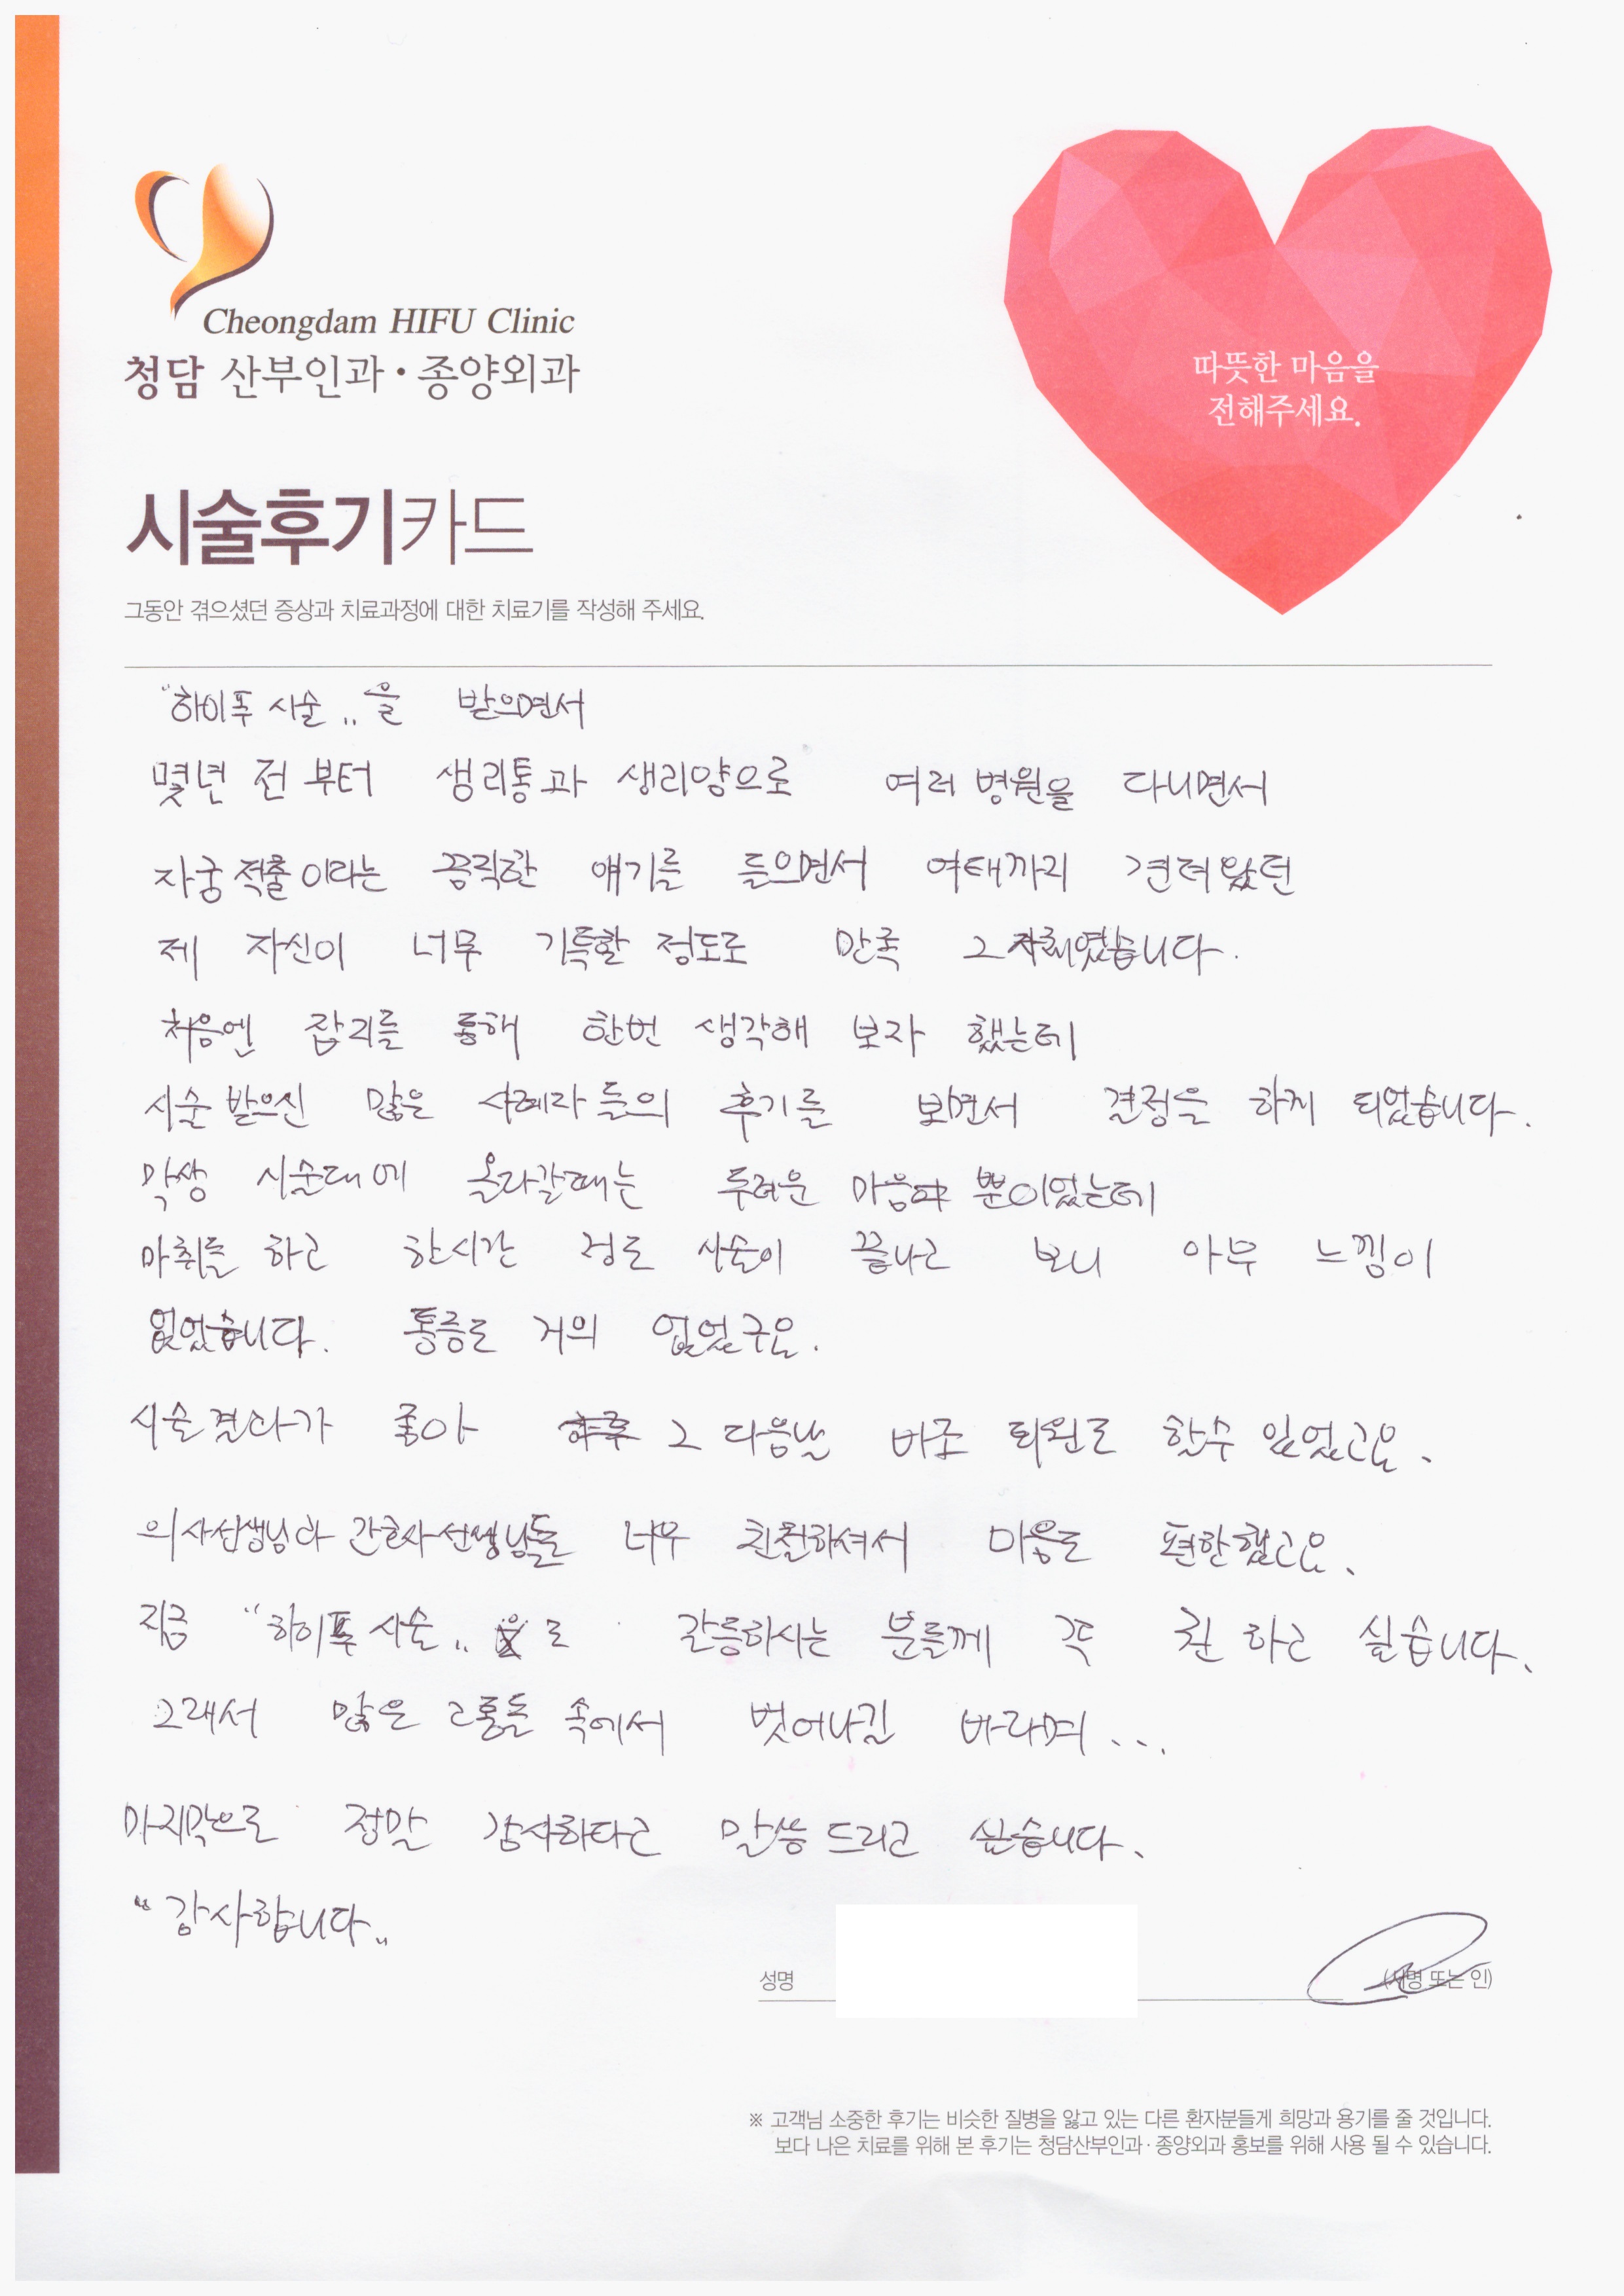 Cheongdam HIFU Clinic
청담 산부인과·종양외과
따뜻한 마음을
전해주세요.
시술후기카드
그동안 겪으셨던 증상과 치료과정에 대한 치료기를 작성해 주세요.
"하이푸 시술"을 받으면서
몇년 전 부터 생리통과 생리양으로 여러 병원을 다니면서
자궁 적출이라는 끔찍한 얘기를 들으면서 여태까지 견뎌왔던
제 자신이 너무 기특할 정도로 만족 그 자체였습니다.
처음엔 잡지를 통해 한번 생각해 보자 했는데
시술 받으신 많은 사례자 들의 후기를 보면서 결정을 하게 되었습니다.
막상 시술대에 올라갈때는 두려운 마음 뿐이었는데
마취를 하고 한시간 정도 시술이 끝나고 보니 아무 느낌이
없었습니다. 통증도 거의 없었구요.
시술결과가 좋아 그 다음날 바로 퇴원도 할수 있었고요.
의사선생님과 간호사선생님들 너무 친절하셔서 마음도 편안했고요.
지금 "하이푸 시술"로 갈등하시는 분들께 꼭 권 하고 싶습니다.
그래서 많은 고통들 속에서 벗어나길 바라며...
마지막으로 정말 감사하다고 말씀 드리고 싶습니다.
"감사합니다"
성명
(서명 또는 인)
※ 고객님 소중한 후기는 비슷한 질병을 앓고 있는 다른 환자분들게 희망과 용기를 줄 것입니다.
보다 나은 치료를 위해 본 후기는 청담산부인과·종양외과 홍보를 위해 사용 될 수 있습니다.